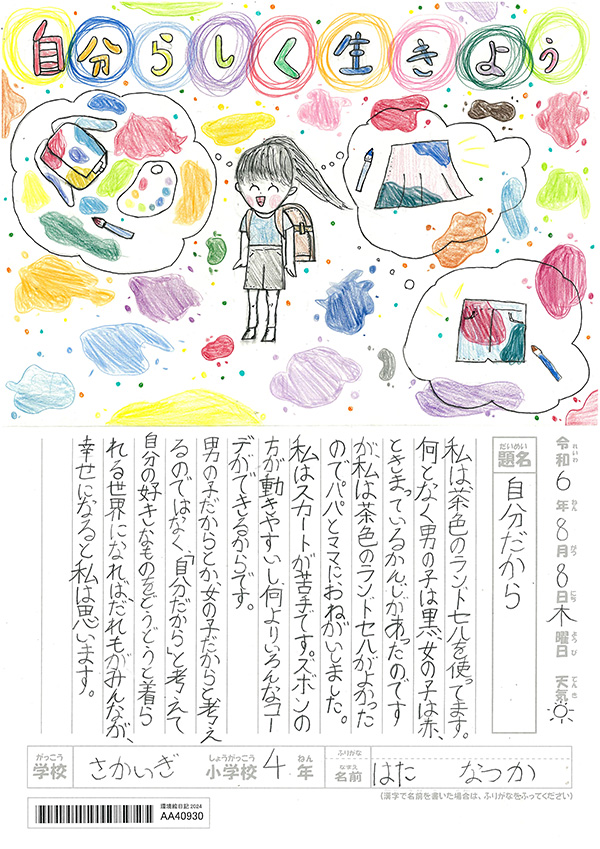 自分らしく生きよう
令和6年8月8日木曜日 天気
れいわ ねん がつ にち ようび てんき
だいめい
題名 自分だから
私は茶色のランドセルを使ってます。
何となく男の子は黒、女の子は赤、
ときまっているかんじがあったのです
が、私は茶色のランドセルがよかった
のでパパとママにおねがいしました。
私はスカートが苦手です。ズボンの
方が動きやすいし、何よりいろんなコー
デができるからです。
男の子だからとか、女の子だからと考え
るのではなく、「自分だから」と考えて
自分の好きなものをどうどうと着ら
れる世界になれば、だれもがみんなが、
幸せになると私は思います。
がっこう しょうがっこう ねん ふりがな
学校 さかいぎ 小学校 4年 なまえ 名前 はた なつか
(漢字で名前を書いた場合は、ふりがなをふってください)
環境絵日記2024
AA40930